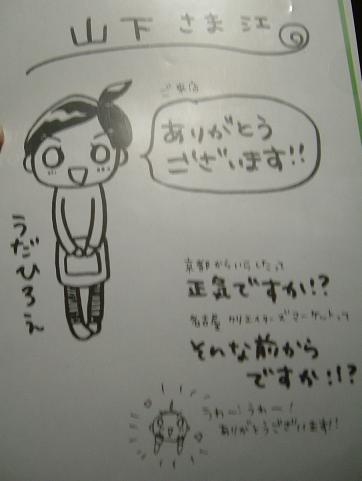 山下さま江
ご来店
ありがとう
ございます!!
うだひろえ
京都からいらしたって
正気ですか!?
名古屋クリエイターズマーケットって
そんな前から
ですか!!?
うわー!うわー!
ありがとうございます!!